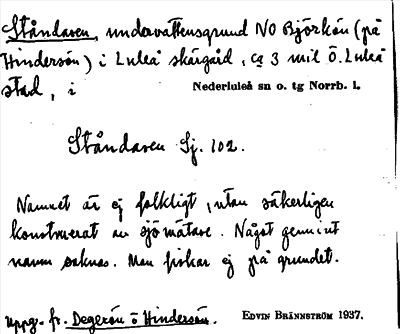 Ståndaren, undervattensgrund NO Björkön (på
Hindersön) i Luleå skärgård, ca 3 mil Ö. Luleå
stad, i Nederluleå sn o. tg Norrb. l.
Ståndaren Sj. 102.
Namnet är ej folkligt, utan säkerligen
konstruerat av sjömätare. Något genuint
namn saknas. Man fiskar ej på grundet.
Uppg. fr. Degerön o Hindersön. EDVIN BRÄNNSTRÖM 1937.